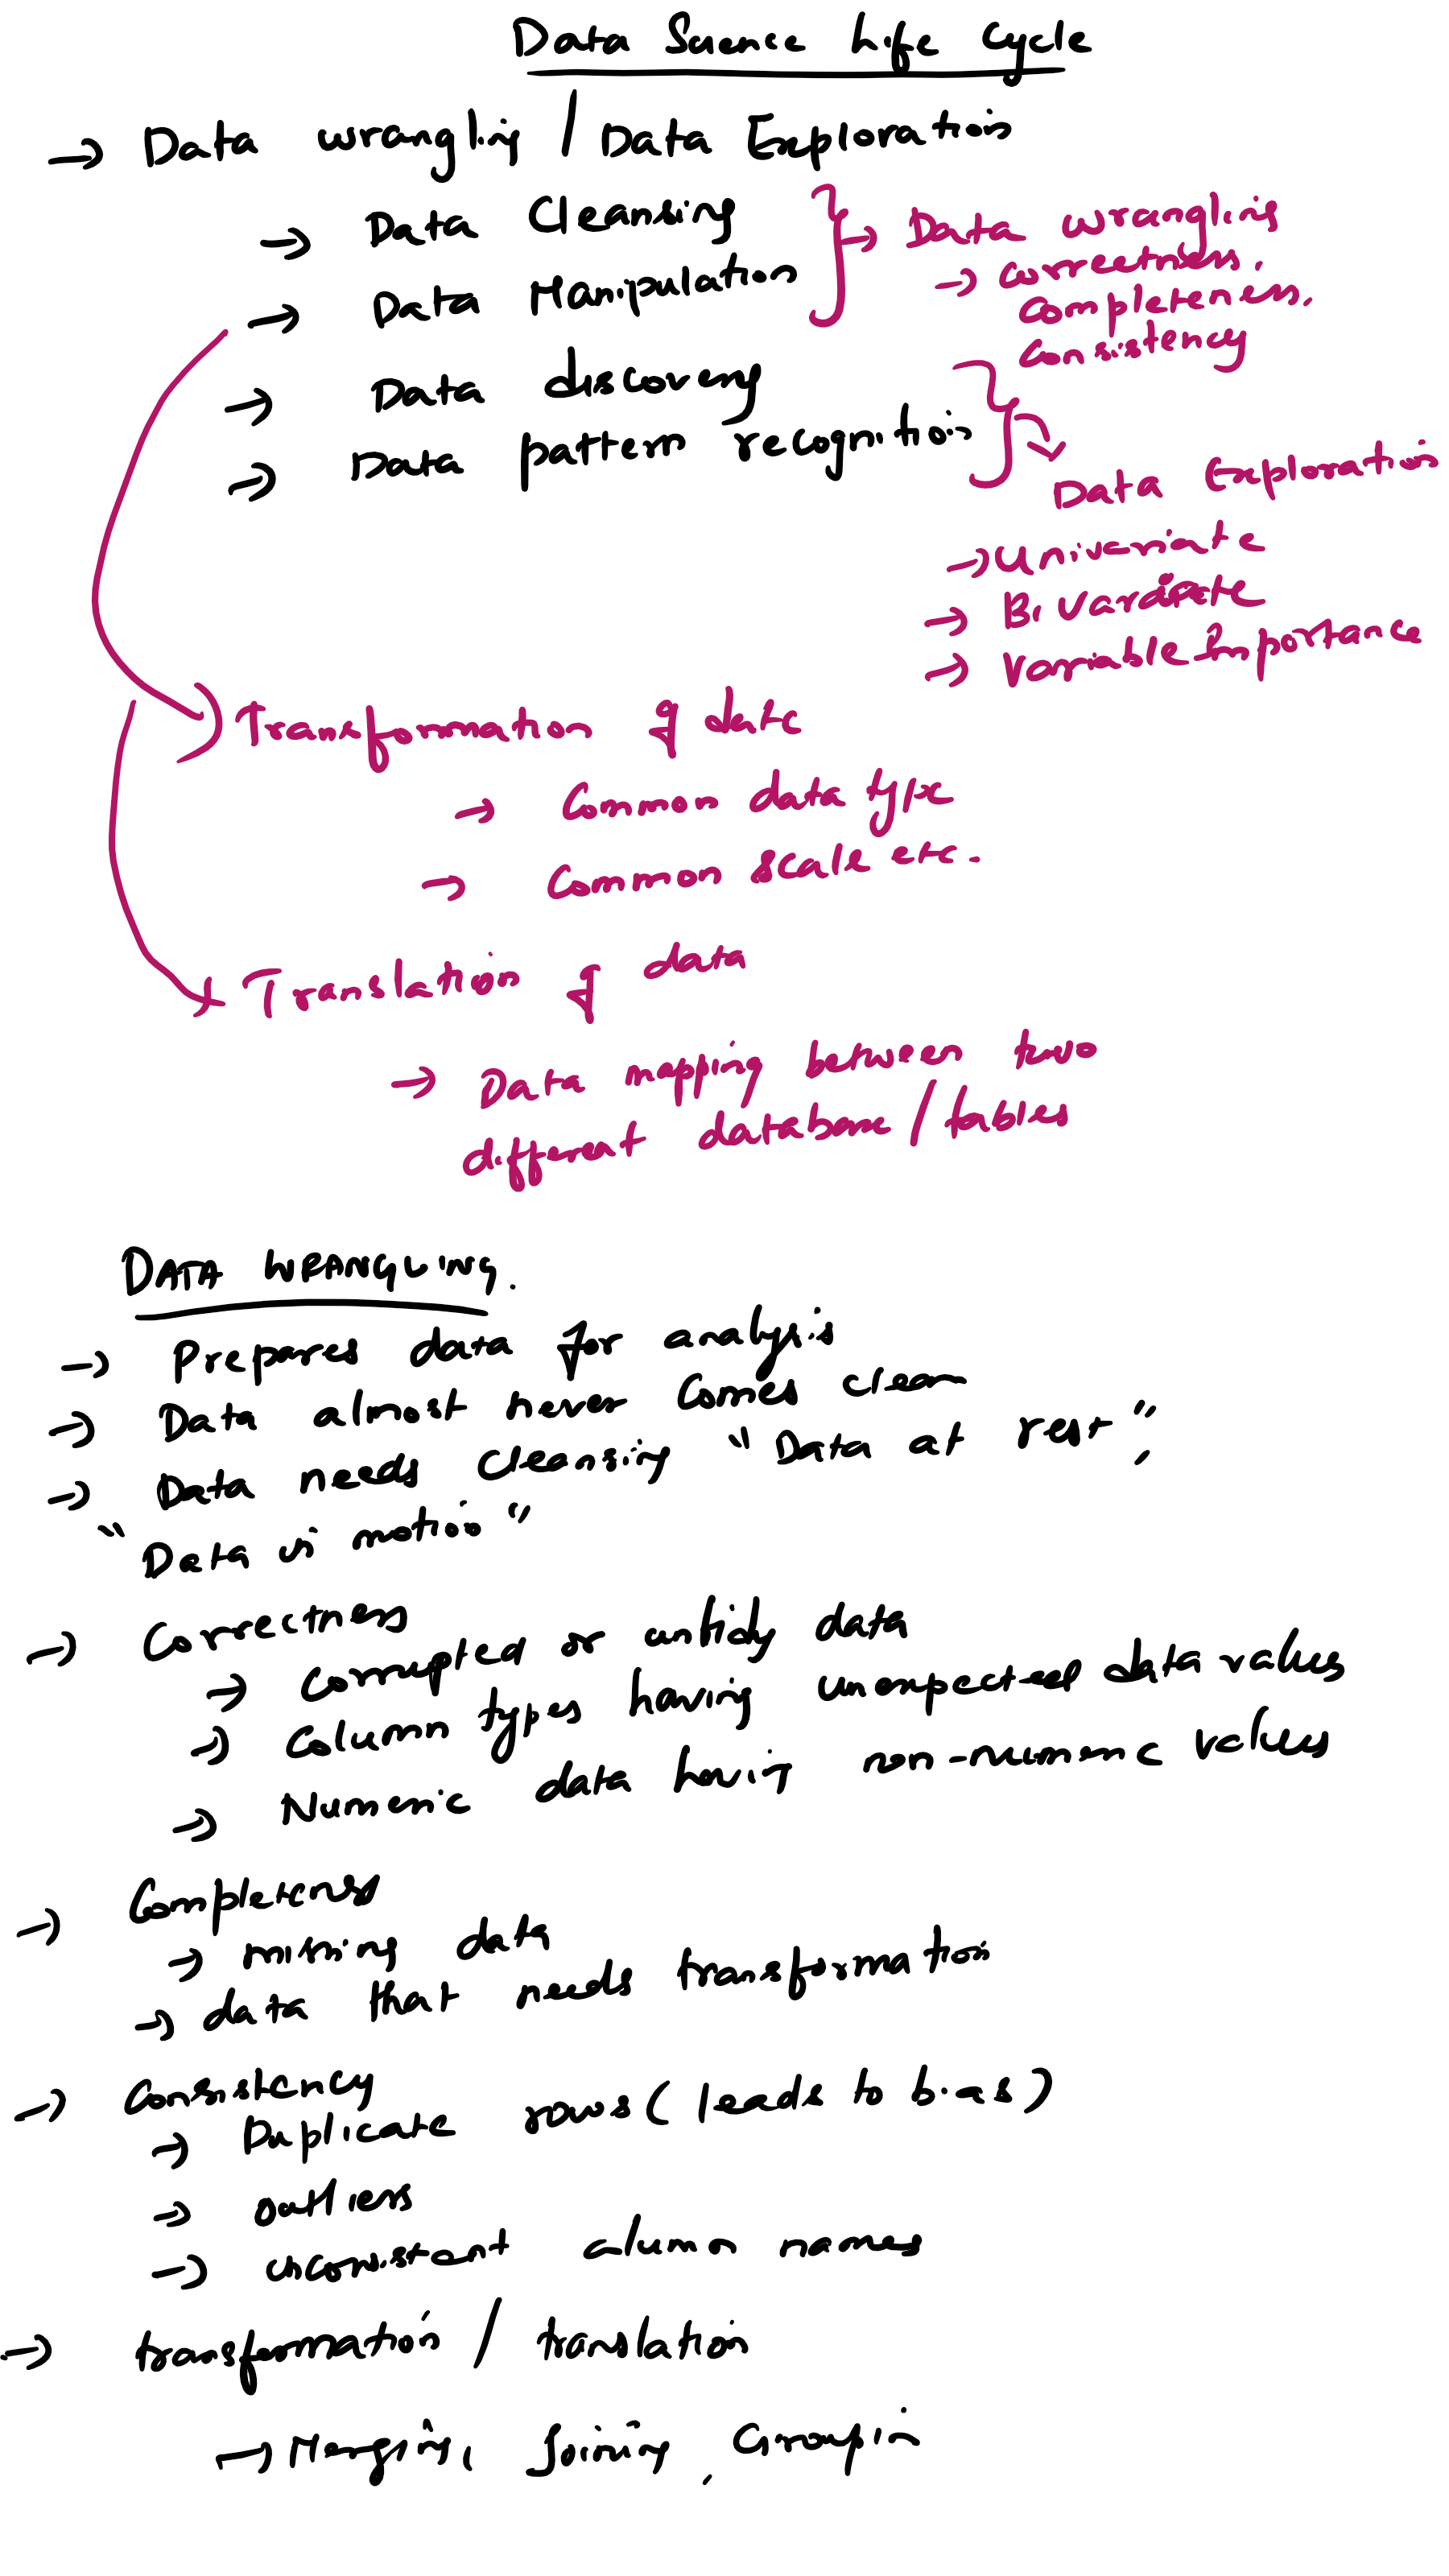 Data Science Life Cycle
→ Data wrangling / Data Exploration
→ Data Cleansing
→ Data Manipulation
→ Data wrangling
→ correctness,
completeness,
consistency
→ Data discovery
→ Data pattern recognition
Data Exploration
→ Univariate
→ Bivariate
→ Variable Importance
Transformation of data
→ Common data type
→ Common scale etc.
Translation of data
→ Data mapping between two
different database / tables
DATA WRANGLING.
→ Prepares data for analysis
→ Data almost never comes clean
→ Data needs cleansing "Data at rest",
"Data in motion"
→ Correctness
→ Corrupted or untidy data
→ Column types having unexpected data values
→ Numeric data having non-numeric values
→ Completeness
→ missing data
→ data that needs transformation
→ Consistency
→ Duplicate rows (leads to bias)
→ outliers
→ inconsistent column names
→ transformation / translation
→ Merging, Joining, Groupin